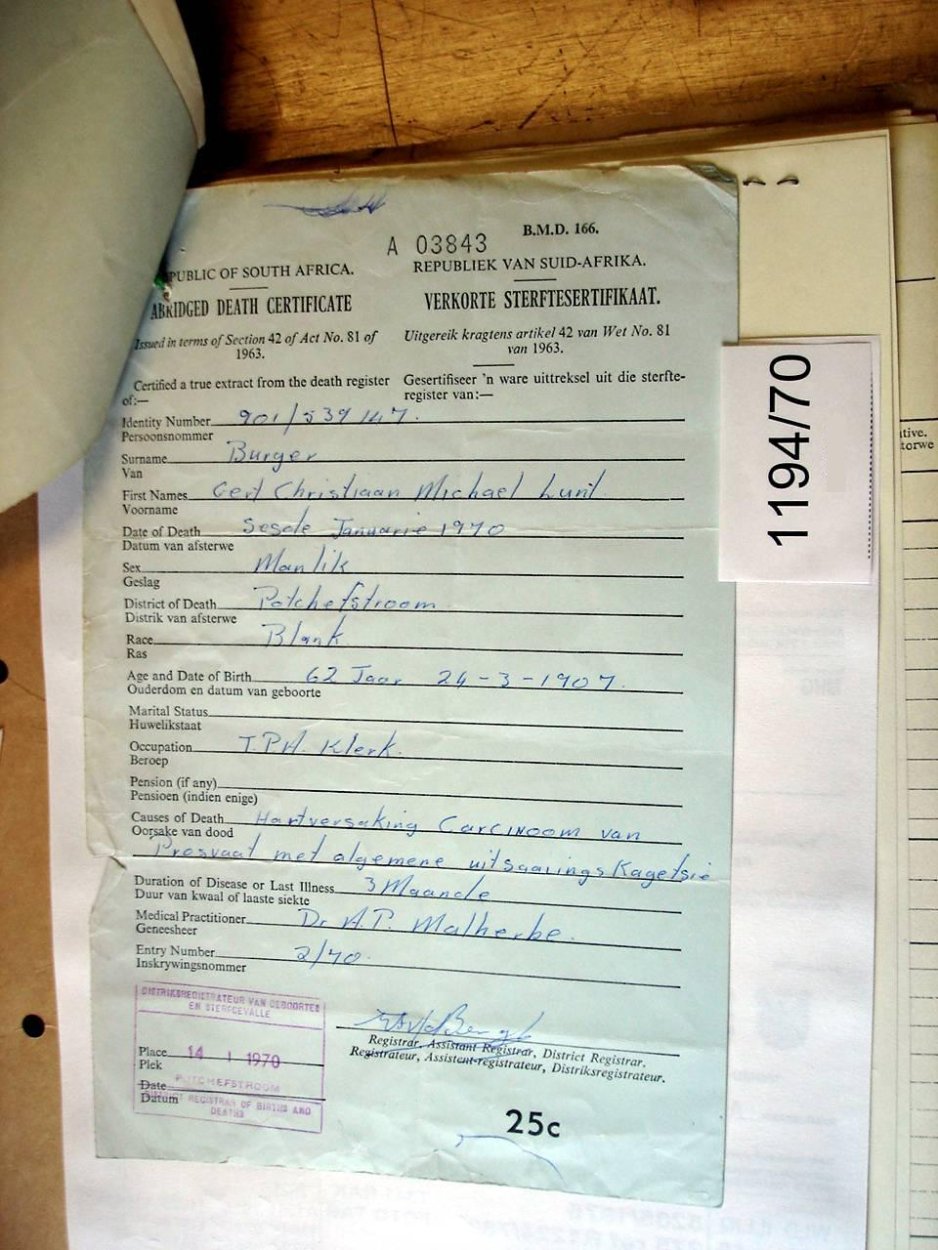 A 03843
B.M.D. 166.
PUBLIC OF SOUTH AFRICA.
REPUBLIEK VAN SUID-AFRIKA.
ABRIDGED DEATH CERTIFICATE
VERKORTE STERFTESERTIFIKAAT.
Issued in terms of Section 42 of Act No. 81 of
1963.
Uitgereik kragtens artikel 42 van Wet No. 81
van 1963.
Certified a true extract from the death register
of:—
Gesertifiseer 'n ware uittreksel uit die sterfte-
register van:—
Identity Number 901/539147.
Persoonsnommer
Surname Burger
Van
First Names Gert Christiaan Michael
Voorname
Date of Death Sesde Januarie 1970
Datum van afsterwe
Sex Manlik
Geslag
District of Death Potchefstroom
Distrik van afsterwe
Race Blank
Ras
Age and Date of Birth 62 Jaar 24-3-1907.
Ouderdom en datum van geboorte
Marital Status
Huwelikstaat
Occupation T.P.A. Klerk.
Beroep
Pension (if any)
Pensioen (indien enige)
Causes of Death Hartversaking Carcinoom van
Oorsake van dood
met algemene uitsaaiings
Duration of Disease or Last Illness 3 Maande
Duur van kwaal of laaste siekte
Medical Practitioner Dr A.P. Malherbe.
Geneesheer
Entry Number 2/70.
Inskrywingsnommer
DISTRIKSREGISTRATEUR VAN GEBOORTES
EN STERFGEVALLE
Place 14 1 1970
Plek
POTCHEFSTROOM
Date
Datum
DISTRICT REGISTRAR OF BIRTHS AND
DEATHS
Registrar, Assistant Registrar, District Registrar.
Registrateur, Assistent-registrateur, Distriksregistrateur.
25c
1194/70
tive.
torwe